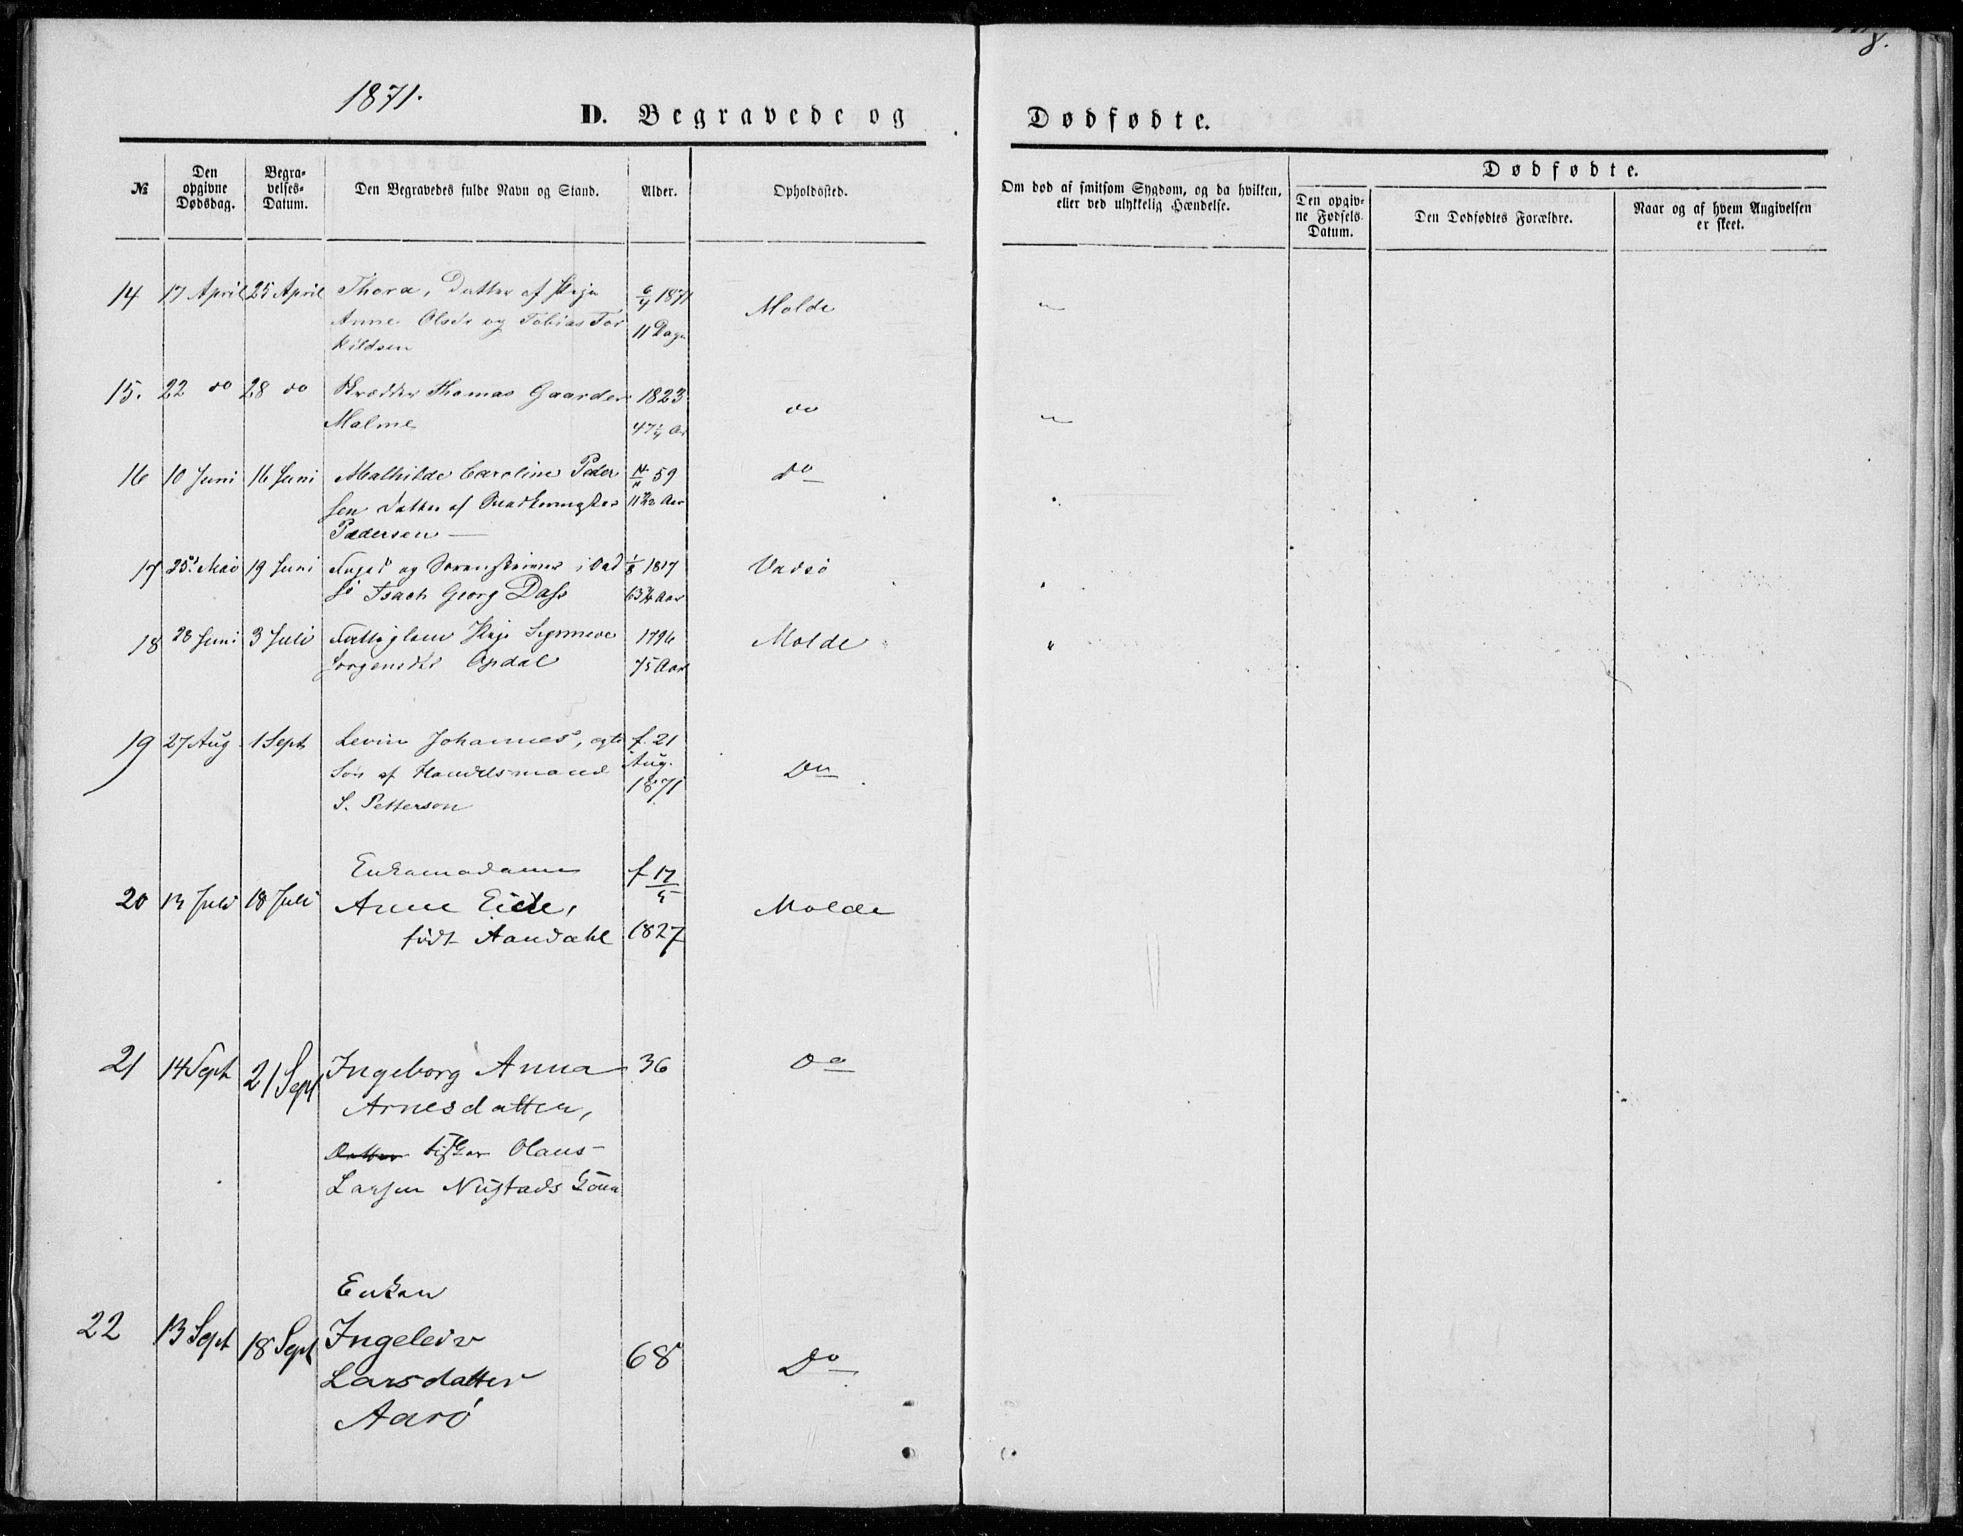 1871.
8.
D. Begravede og
Dødfødte.
№
Den opgivne Dødsdag.
Begravelses-Datum.
Den Begravedes fulde Navn og Stand.
Alder.
Opholdssted.
Om død af smitsom Sygdom, og da hvilken, eller ved ulykkelig Hændelse.
Dødfødte.
Den opgivne Fødsels-Datum.
Den Dødfødtes Forældre.
Naar og af hvem Angivelsen er skeet.
14 17 April 25 April Thora, Datter af Pige 6/4 1871 Molde "
Anne Olsdr og Tobias Tor 11 Dage
kildsen
15. 22 do 28 do Skrædder Thomas Gaarder 1823 do "
Malme 47 1/4 Ar
16 10 Juni 16 Juni Mathilde Caroline Peder 59 do "
sen Datter af
Pedersen
17 25 Mai 19 Juni Foged og Sorenskriver i Vad 1/8 1817 Vadsö "
sö Isach Georg Dass 63 3/4 Aar
18 28 Juni 3 Juli Fattiglem Pige Synneve 1796 Molde "
Jörgensdtr Opdal 75 Aar
19 27 Aug 1 Sept Levin Johannes, ægte f. 21 Do
Sön af Handelsmand Aug.
S. Petterson 1871
Enkemadame f 17/5
20 13 Juli 18 Juli Anne Eide, Molde
födt Aandahl 1827
21 14 Sept 21 Sept Ingeborg Anna 36 Do
Arnesdatter,
Datter Fisker Olaus
Larsen Nustads Kona
Enken
22 13 Sept 18 Sept Ingeleiv 68 Do
Larsdatter
Aarö